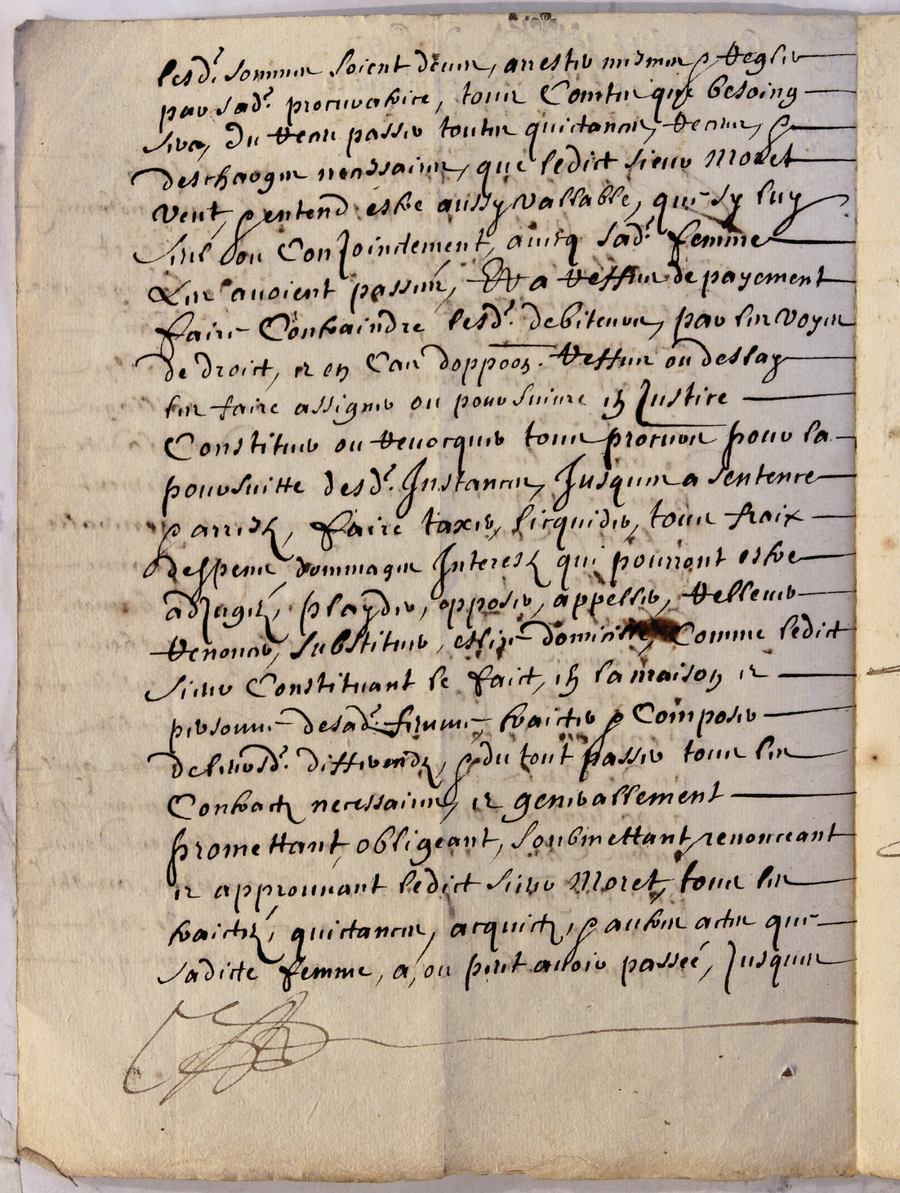 lesd. sommes soient deues, arrester mesmes & regler
par sad. procuratrice, tous Comtes que besoing
sera, du receu passer toutes quictances, receus, &
descharges necessaires, que ledict sieur Moret
veut, & entend estre aussy vallable, que sy luy
seul ou Conjoinctement, avecq sad. femme
Les avoient passes, Et a reffus de payement
faire Contraindre lesd. debiteurs, par les voyes
de droict, et en Cas doppoon. reffus ou deslay
les faire assigner ou poursuivre en Justice
Constituer ou revocquer tous procureurs pour la
poursuitte desd. Instances, Jusques a sentence
& arrest, faire taxer, licquider, tous fraix
despens, dommages Interestz qui pourront estre
adjugez, playder, opposer, appeller, rellever
renoncer, substituer, eslire domicille, Comme ledict
sieur Constituant le faict, en la maison et
personne de sad. femme, traicter & Composer
de leursd. differendz, & du tout passer tous les
Contractz necessaires, et generallement
promettant, obligeant, soubmettant, renonceant
et approuvant ledict sieur Moret, tous les
traictez, quictances, acquictz, & autres actes que
sadicte femme, a, ou peut avoir passeé, Jusques